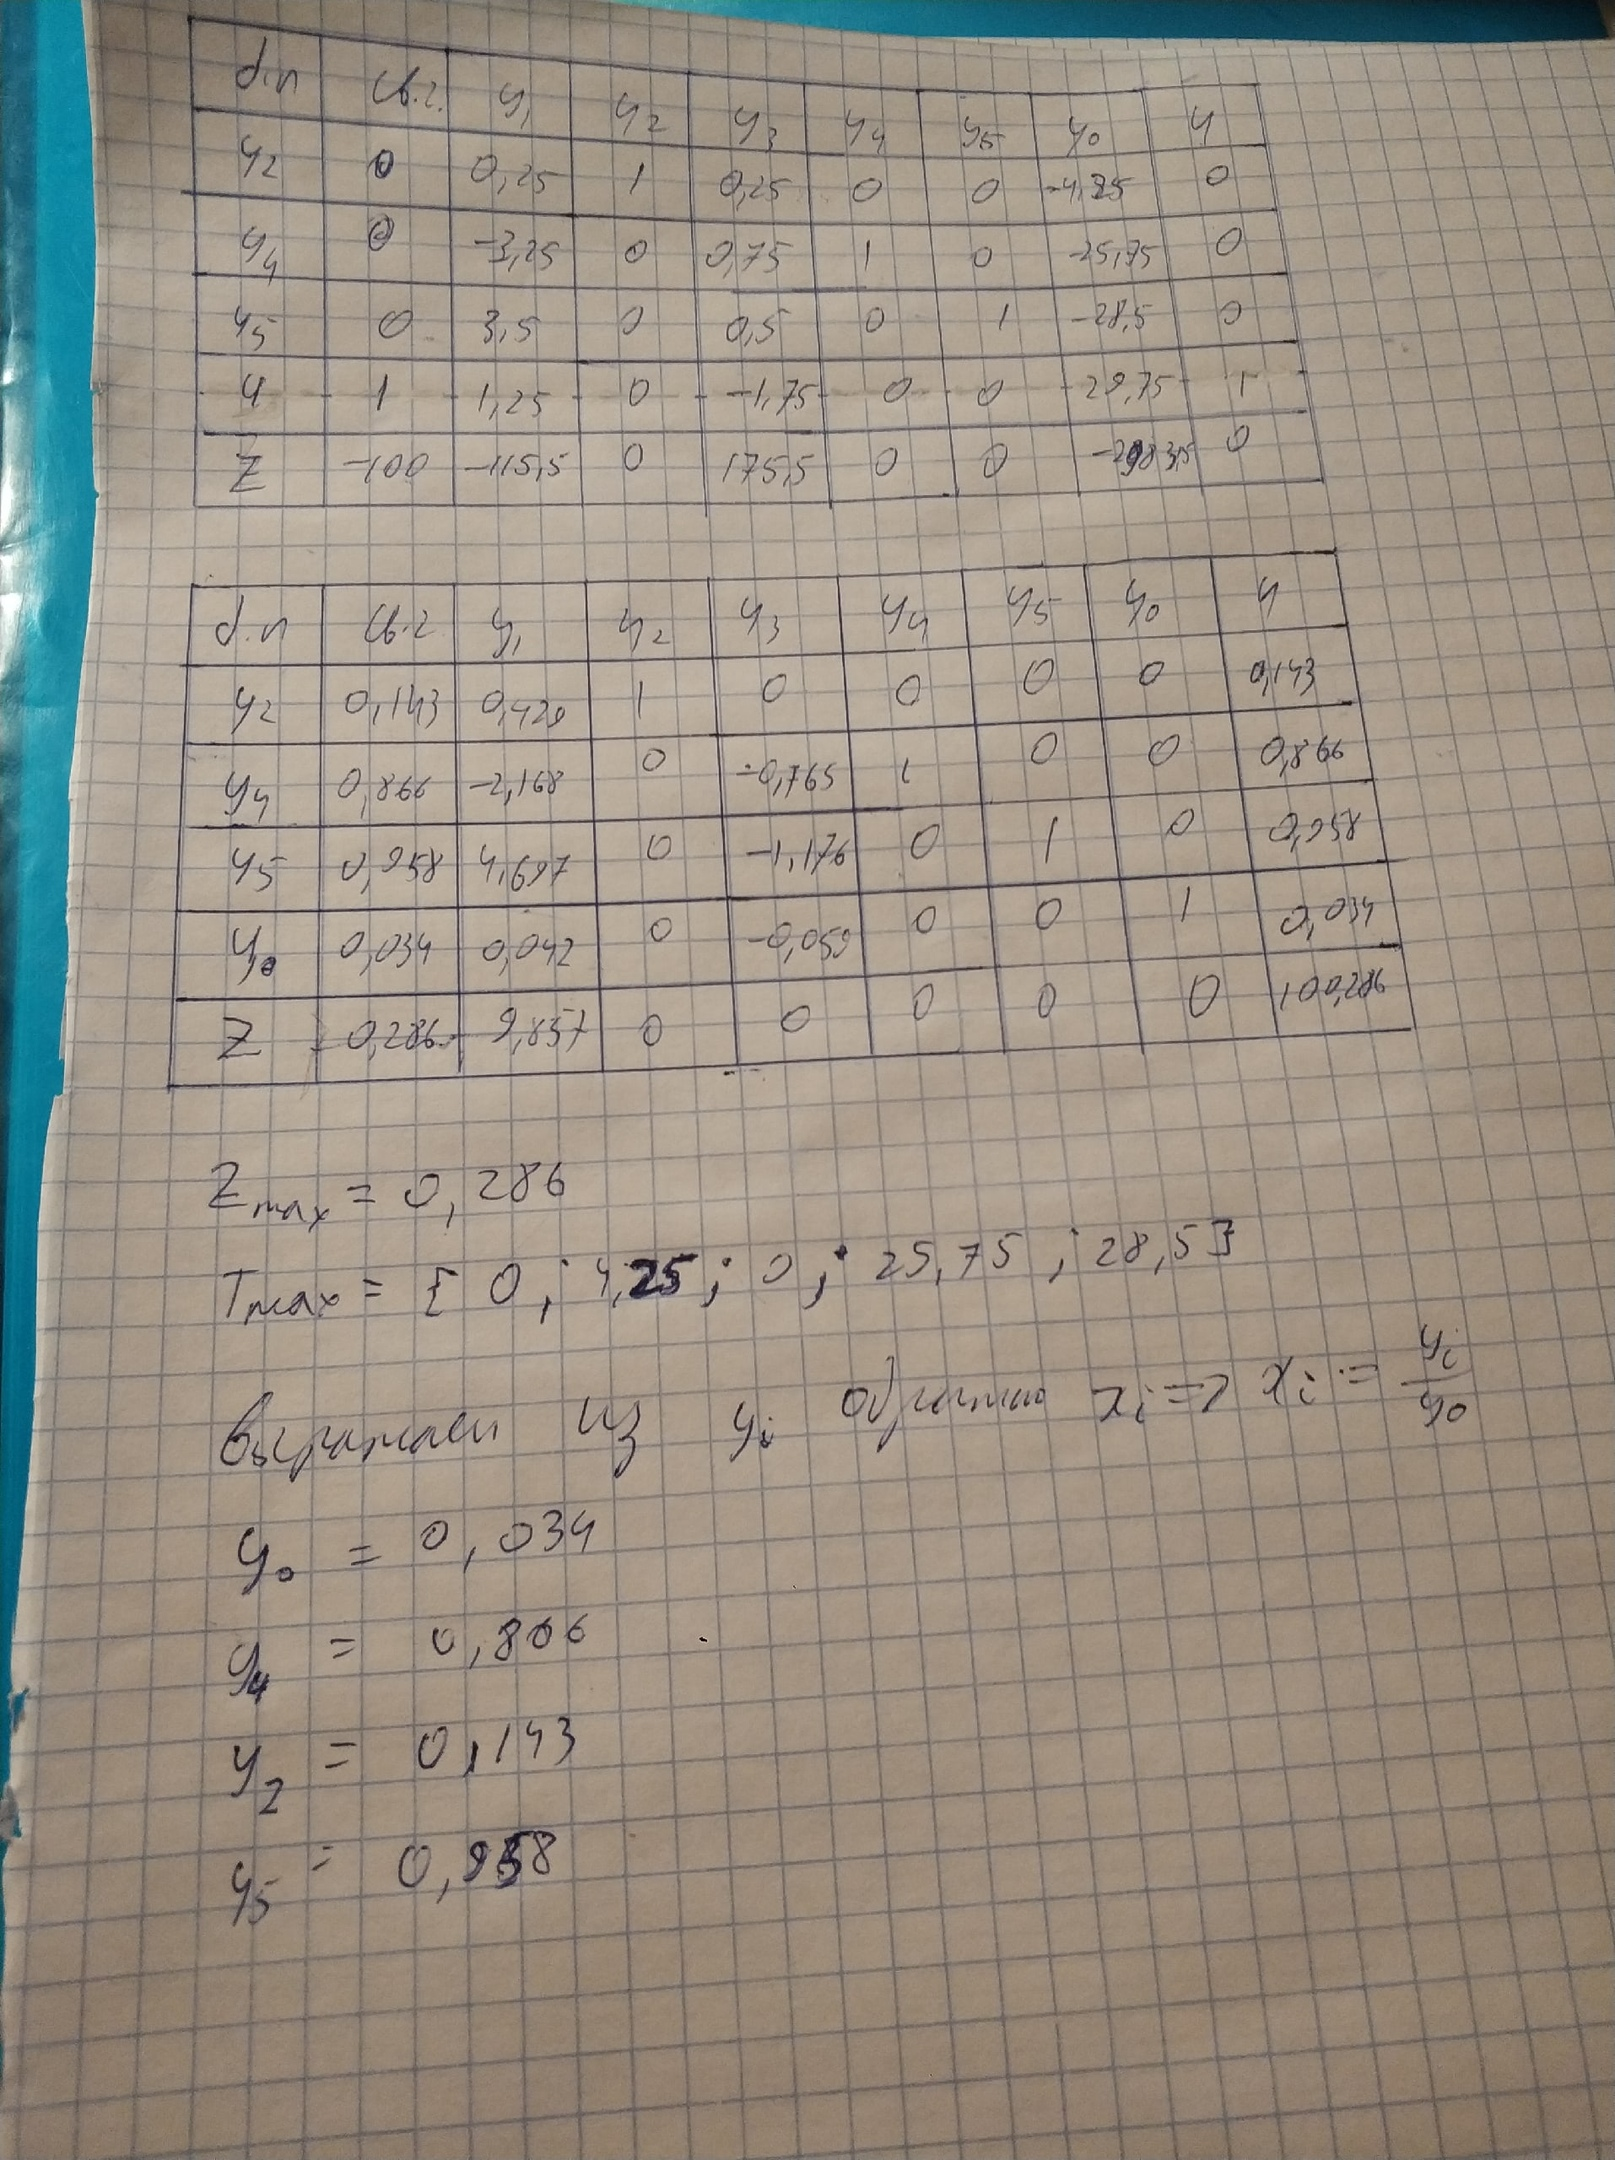 б.п св.г. y₁ y₂ y₃ y₄ y₅ y₀ y
y₂ 0 0,25 1 0,25 0 0 -4,25 0
y₄ 0 -3,25 0 0,75 1 0 -25,75 0
y₅ 0 3,5 0 0,5 0 1 -28,5 0
y 1 1,25 0 -1,75 0 0 29,75 1
Z -100 -115,5 0 175,5 0 0 0
б.п св.г y₁ y₂ y₃ y₄ y₅ y₀ y
y₂ 0,143 0,429 1 0 0 0 0 0,143
y₄ 0,866 -2,168 0 -0,765 1 0 0 0,866
y₅ 0,958 4,697 0 -1,176 0 1 0 0,958
y₀ 0,034 0,042 0 -0,059 0 0 1 0,034
Z 0,286 9,857 0 0 0 0 0 100,286
Zmax = 0,286
Tmax = { 0 ; 4,25 ; 0 ; 25,75 ; 28,5}
Выражаем из yᵢ обратно xᵢ => xᵢ = yᵢ/y₀
y₀ = 0,034
y₄ = 0,866
y₂ = 0,143
y₅ = 0,958